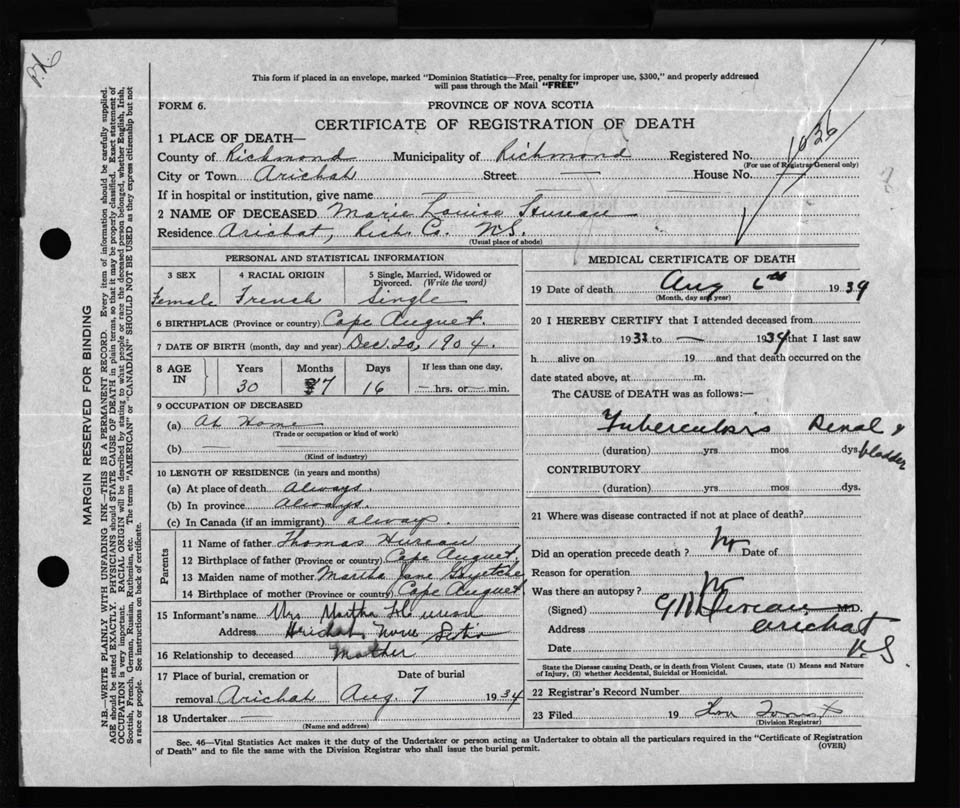 P.h.
This form if placed in an envelope, marked "Dominion Statistics—Free, penalty for improper use, $300," and properly addressed
will pass through the Mail "FREE"
FORM 6.
PROVINCE OF NOVA SCOTIA
CERTIFICATE OF REGISTRATION OF DEATH
1636
1 PLACE OF DEATH—
County of Richmond Municipality of Richmond Registered No.
(For use of Registrar General only)
City or Town Arichat Street — House No. —
If in hospital or institution, give name —
2 NAME OF DECEASED Marie Louise Hureau
Residence Arichat, Rich. Co. N.S.
(Usual place of abode)
MARGIN RESERVED FOR BINDING
N.B.—WRITE PLAINLY WITH UNFADING INK—THIS IS A PERMANENT RECORD. Every item of information should be carefully supplied.
AGE should be stated EXACTLY. PHYSICIANS should STATE CAUSE OF DEATH in plain terms, so that it may be properly classified. Exact statement of
OCCUPATION is very important. RACIAL ORIGIN will be described by stating to what people or race the deceased person belonged, whether English, Irish,
Scottish, French, German, Russian, Ruthenian, etc. The terms "AMERICAN" or "CANADIAN" SHOULD NOT BE USED as they express citizenship but not
a race or people. See instructions on back of certificate.
PERSONAL AND STATISTICAL INFORMATION
3 SEX 4 RACIAL ORIGIN 5 Single, Married, Widowed or
Divorced. (Write the word)
Female French Single
6 BIRTHPLACE (Province or country) Cape Auguet.
7 DATE OF BIRTH (month, day and year) Dec. 20, 1904.
8 AGE IN Years Months Days If less than one day,
30 7 16 — hrs. or — min.
9 OCCUPATION OF DECEASED
(a) At Home
(Trade or occupation or kind of work)
(b) —
(Kind of industry)
10 LENGTH OF RESIDENCE (in years and months)
(a) At place of death Always.
(b) In province Always.
(c) In Canada (if an immigrant) alway.
Parents
11 Name of father Thomas Hureau
12 Birthplace of father (Province or Country) Cape Auguet.
13 Maiden name of mother Martha Jane
14 Birthplace of mother (Province or Country) Cape Auguet
15 Informant's name Mrs Martha Hureau
Address Arichat, Nova Scotia
16 Relationship to deceased Mother
17 Place of burial, cremation or Date of burial
removal Arichat Aug. 7 1934
18 Undertaker —
(Name and address)
MEDICAL CERTIFICATE OF DEATH
19 Date of death Aug 6th 1934
(Month, day and year)
20 I HEREBY CERTIFY that I attended deceased from
1931 to — 1934 that I last saw
h alive on 19 and that death occurred on
date stated above, at m.
The CAUSE of DEATH was as follows:—
Tuberculosis Renal & bladder
(duration) yrs. mos. dys.
CONTRIBUTORY
(duration) yrs. mos. dys.
21 Where was disease contracted if not at place of death?
Did an operation precede death? No Date of
Reason for operation
Was there an autopsy? No
(Signed) M.D.
Address Arichat
Date N.S.
State the Disease causing Death, or in death from Violent Causes, state (1) Means and Nature
of Injury, (2) whether Accidental, Suicidal or Homicidal.
22 Registrar's Record Number
23 Filed 19
(Division Registrar)
Sec. 46—Vital Statistics Act makes it the duty of the Undertaker or person acting as Undertaker to obtain all the particulars required in the "Certificate of Registration
of Death" and to file the same with the Division Registrar who shall issue the burial permit. (OVER)